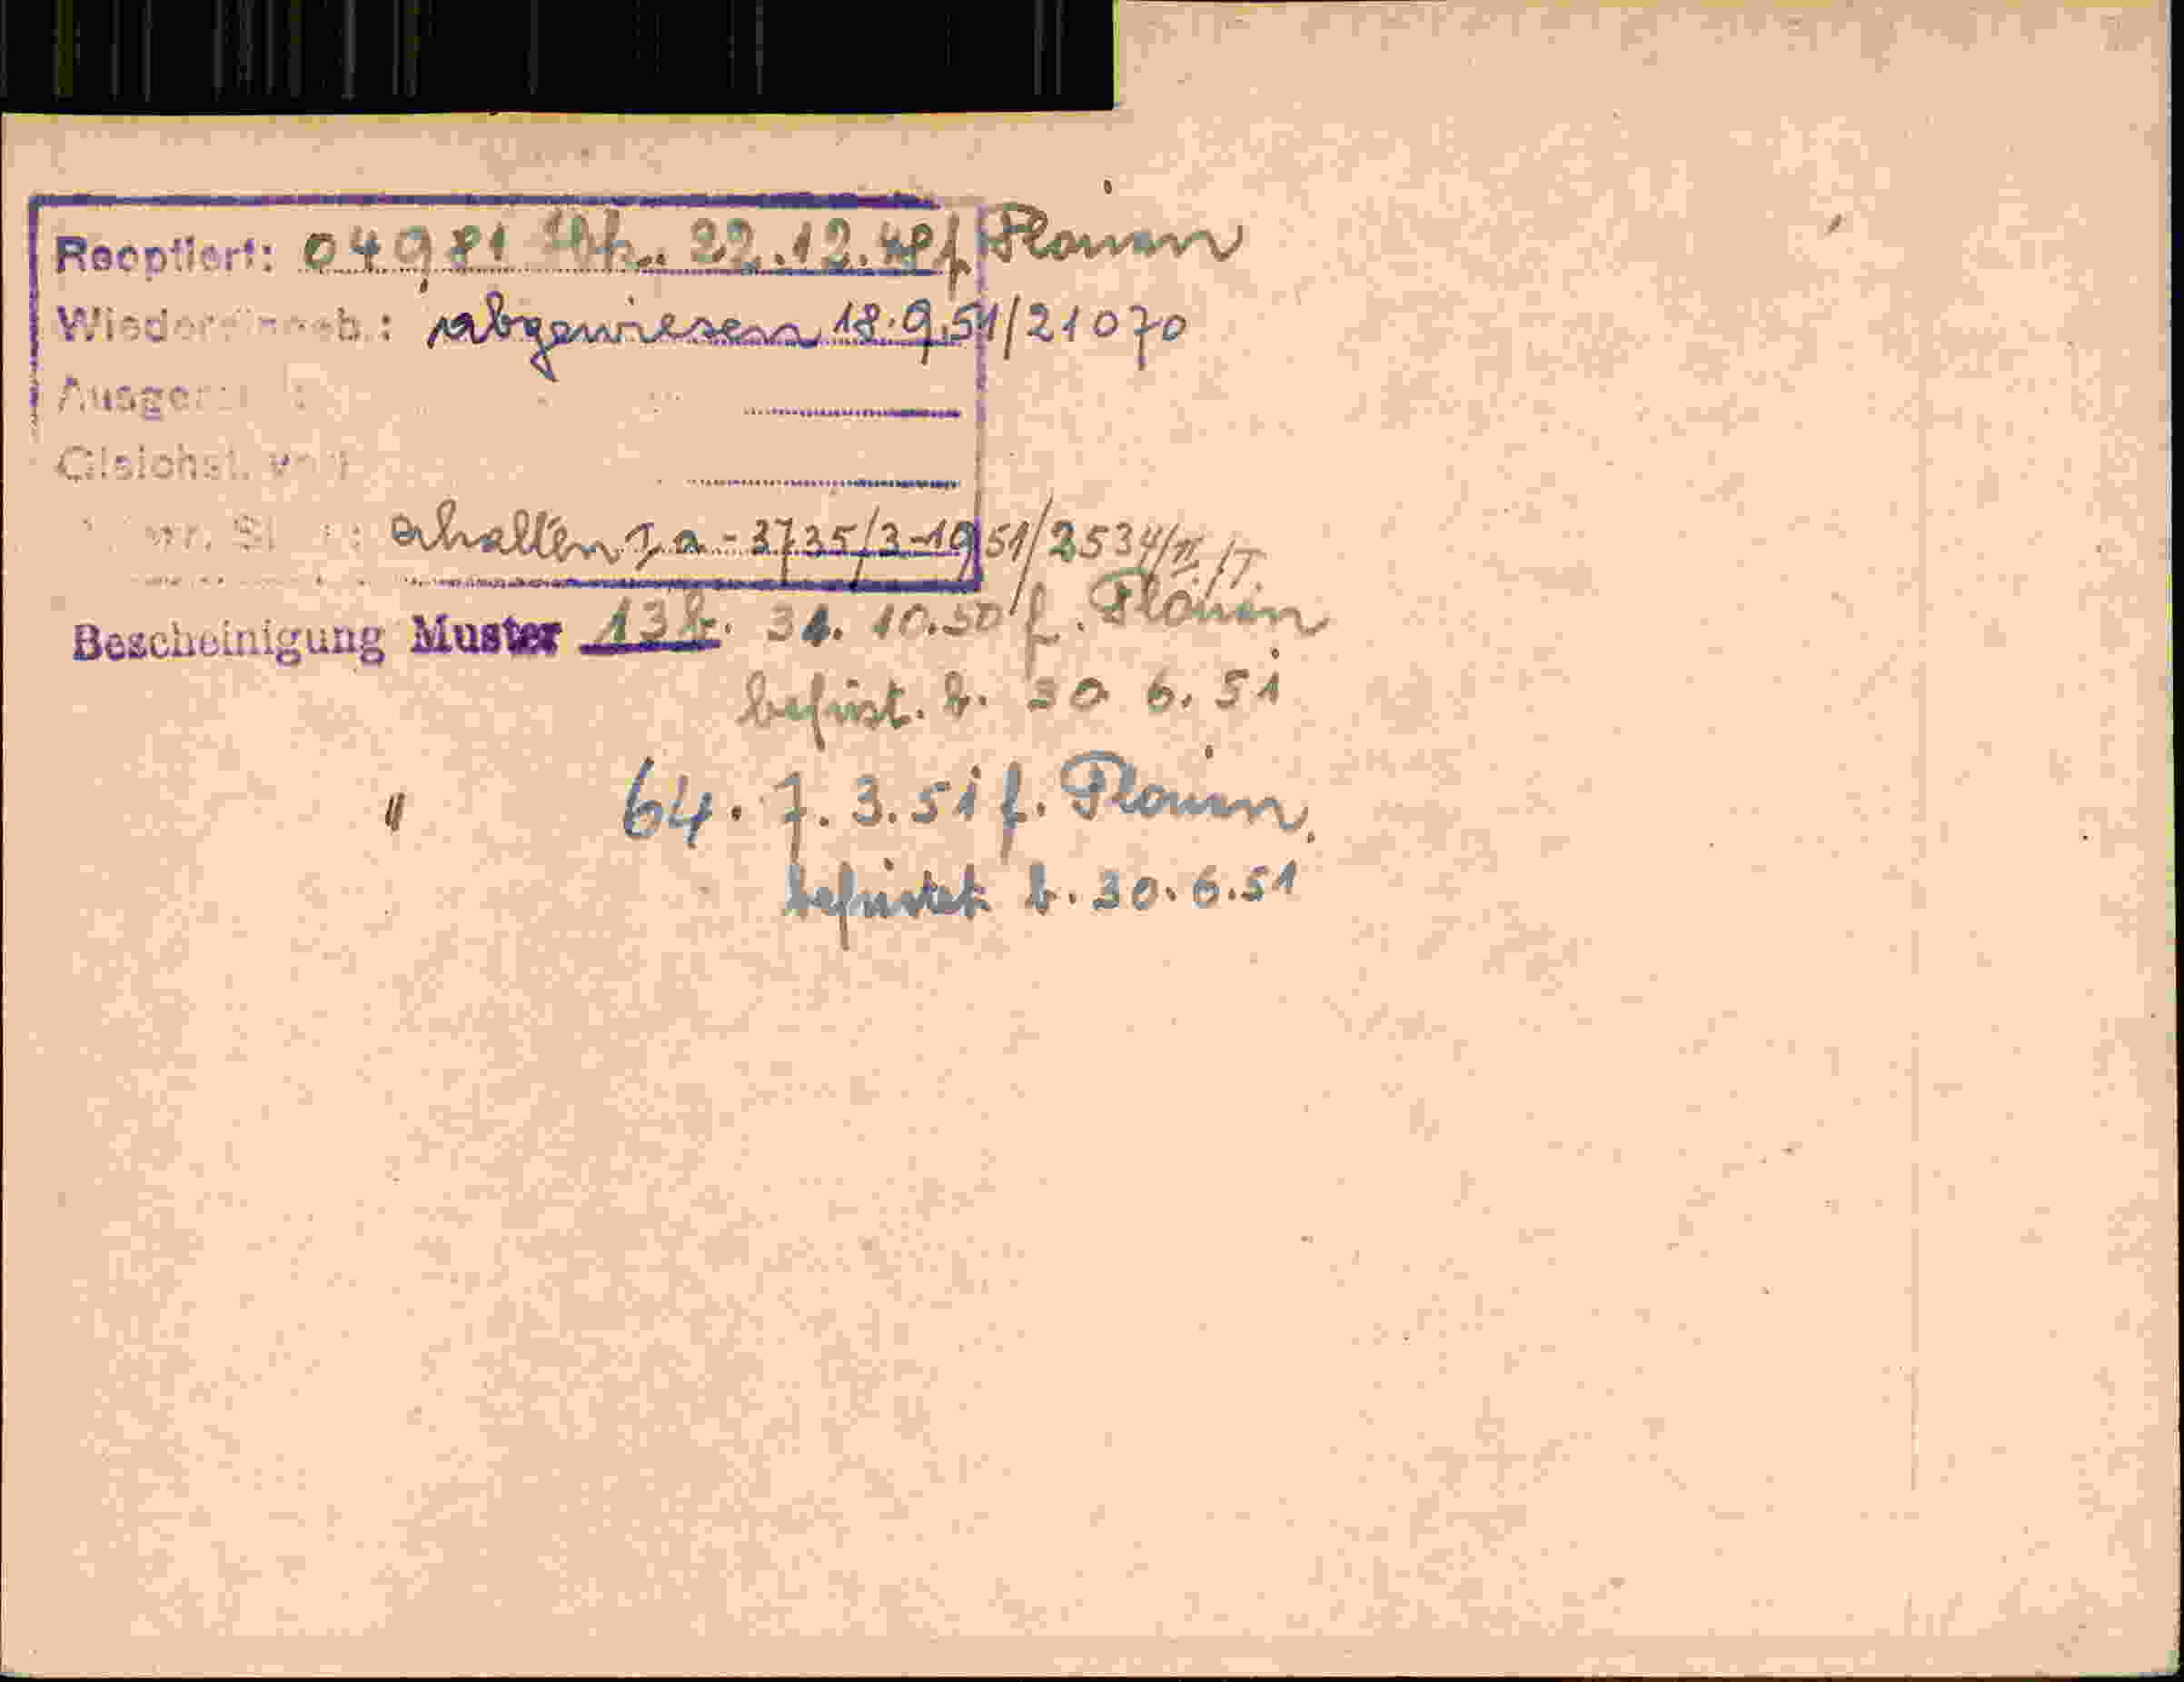 Rooptiert: 04981 22.12.48 f. Plauen
: abgewiesen 18.9.51/21070
Gleichst. v
: erhalten Ja - 3735/3-1951/2534/II/T.
Bescheinigung Muster 13 31. 10.50 f. Plauen
befrist. b. 30 6. 51
" 64. 7. 3. 51 f. Plauen,
befristet b. 30. 6. 51